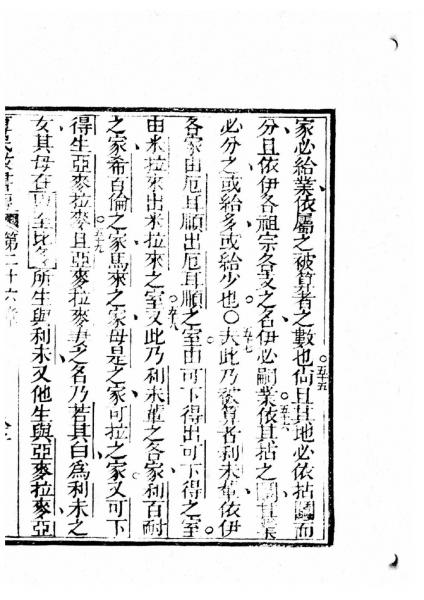 家必給業依屬之被算者之數也。五十五尙且其地必依拈鬮而
分且依伊各祖宗各支之名伊必嗣業。五十六依其拈之鬮其業
必分之或給多或給少也〇五十七夫此乃被算者利未輩依伊
各家由厄耳順出厄耳順之室由可下得出可下得之室。
由米拉來出米拉來之室。五十八又此乃利未輩之各家利百耐
之家希百倫之家馬來之家母是之家可拉之家。又可下
得生亞麥拉麥。五十九且亞麥拉麥妻之名乃若其白為利未之
女其母在以至比多所生與利未又他生與亞麥拉麥亞
第二十六章